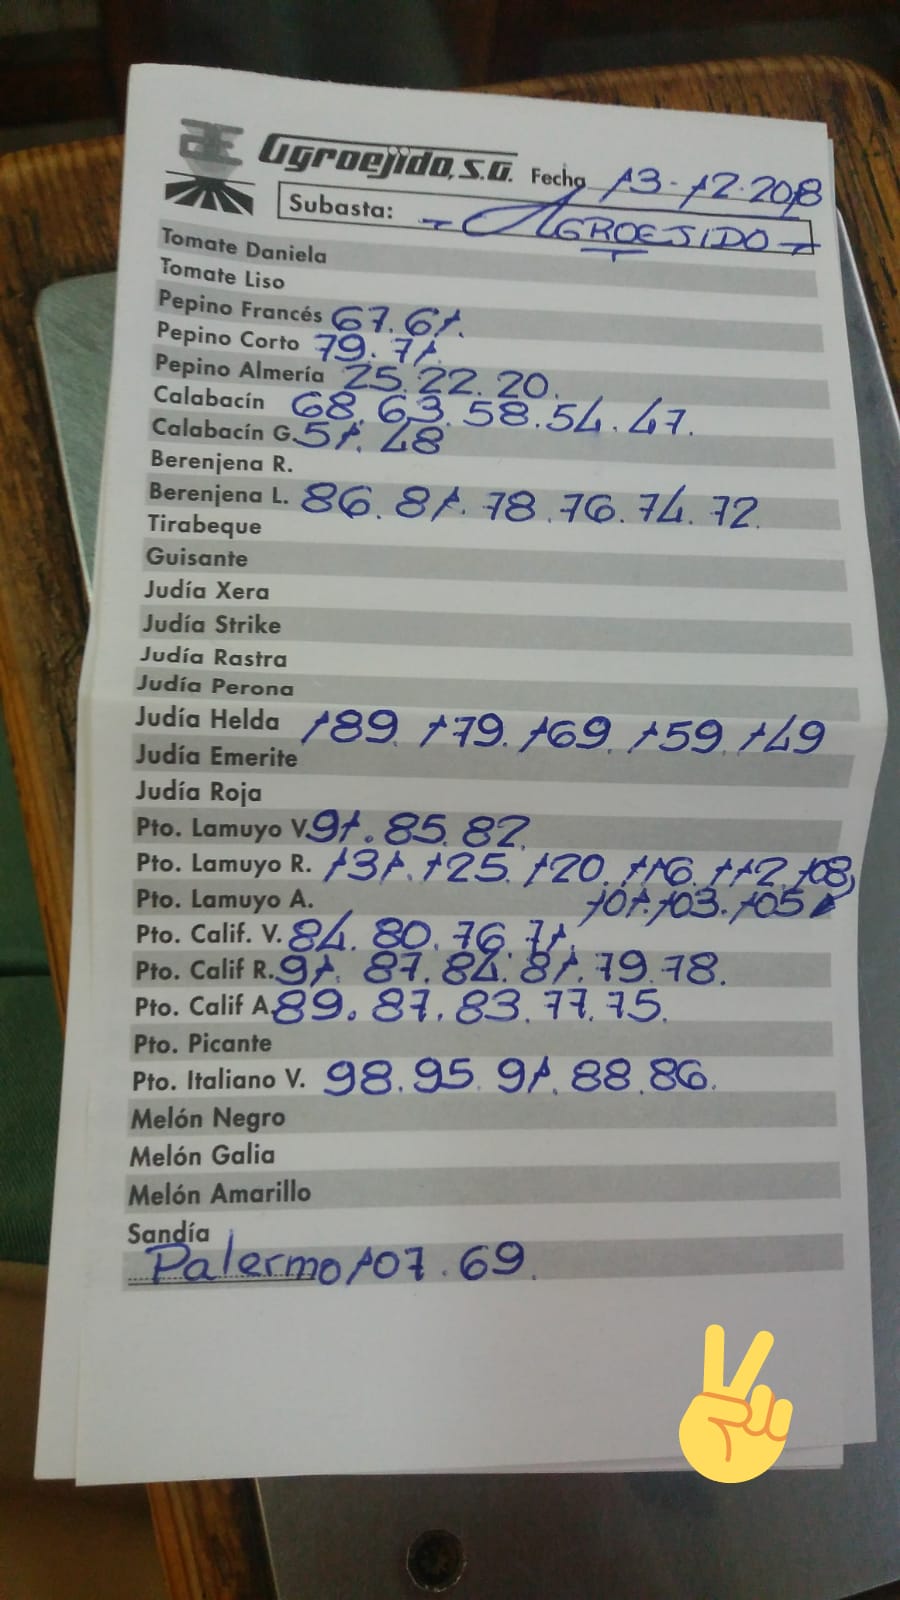 Agroejido, S.A. Fecha 13-12-2018
Subasta: - AGROEJIDO -
Tomate Daniela
Tomate Liso
Pepino Francés 67. 61.
Pepino Corto 79. 71.
Pepino Almería 25. 22. 20.
Calabacín 68. 63. 58. 54. 47.
Calabacín G. 51. 48
Berenjena R.
Berenjena L. 86. 81. 78. 76. 74. 72.
Tirabeque
Guisante
Judía Xera
Judía Strike
Judía Rastra
Judía Perona
Judía Helda 189. 179. 169. 159. 149
Judía Emerite
Judía Roja
Pto. Lamuyo V. 91. 85. 82.
Pto. Lamuyo R. 131. 125. 120. 116. 112. 108,
Pto. Lamuyo A. 101. 103. 105
Pto. Calif. V. 84. 80. 76. 71.
Pto. Calif R. 91. 87. 84. 81. 79. 78.
Pto. Calif A. 89. 87. 83. 77. 75.
Pto. Picante
Pto. Italiano V. 98. 95. 91. 88. 86.
Melón Negro
Melón Galia
Melón Amarillo
Sandía
Palermo 107. 69.